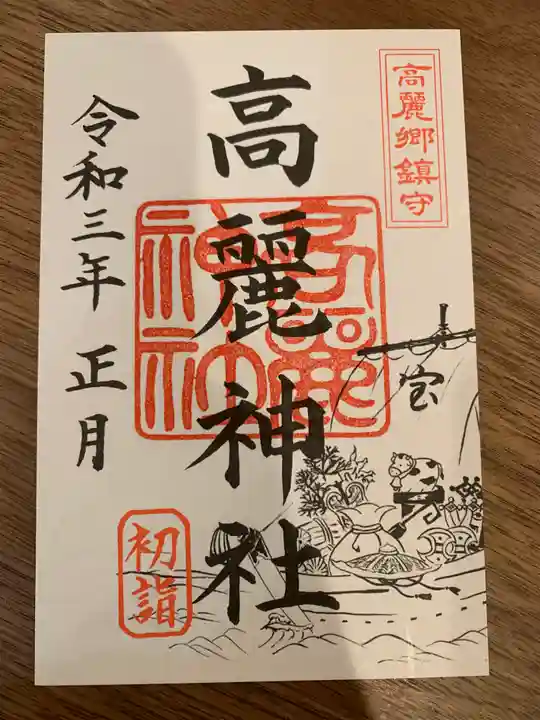 高麗郷鎮守
高麗神社
高麗
神社
宝
令和三年 正月
初詣